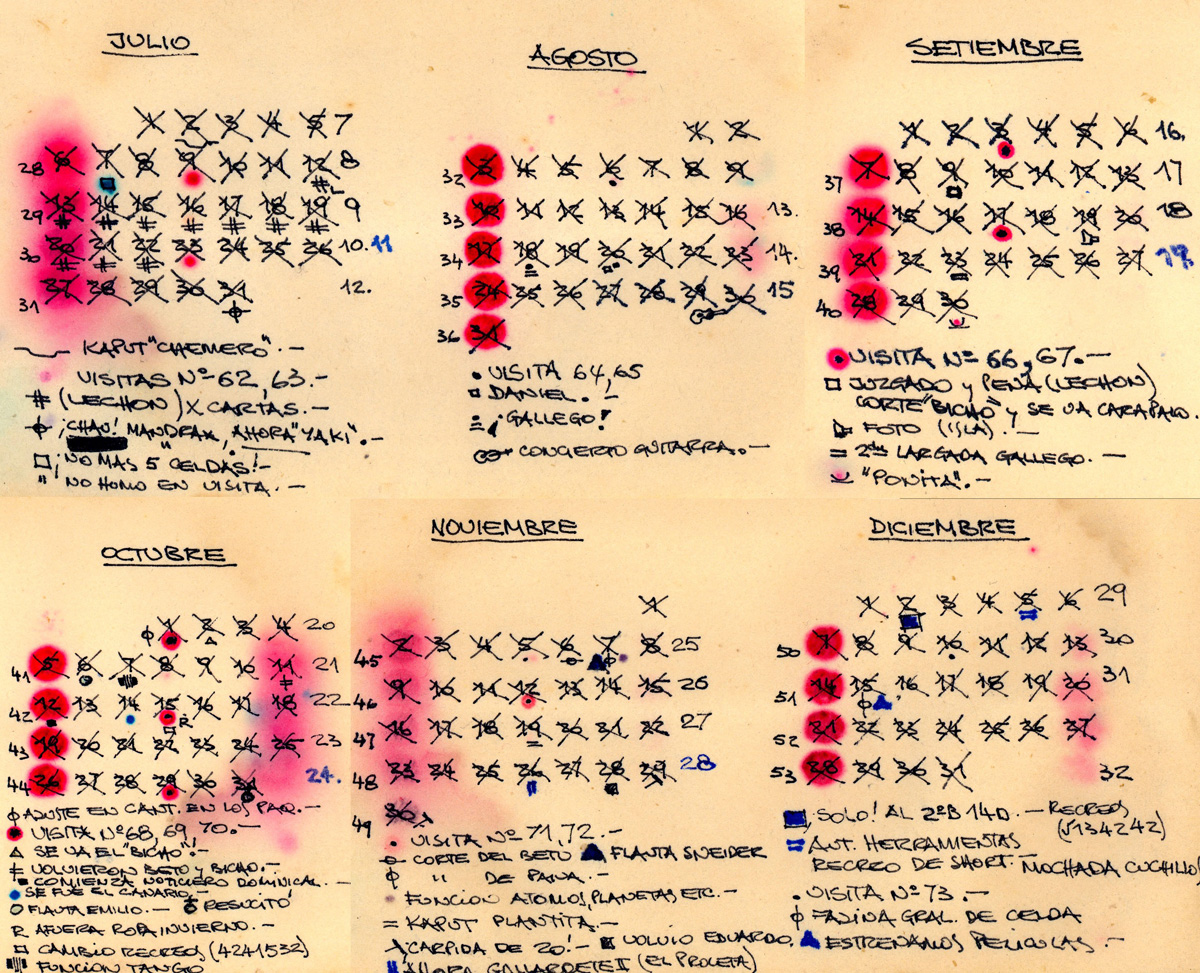 JULIO
1 2 3 4 5 7
28 6 7 8 9 10 11 12 8
29 13 14 15 16 17 18 19 9
30 20 21 22 23 24 25 26 10. 11
31 27 28 29 30 31 12.
KAPUT "CHEMERO".-
VISITAS Nº 62, 63.-
# (LECHON) X CARTAS.-
¡CHAU! MANDRAX, AHORA "YAKI".-
¡NO MAS 5 CELDAS!-
" NO HOMO EN VISITA.-
AGOSTO
1 2
32 3 4 5 6 7 8 9
33 10 11 12 13 14 15 16 13.
34 17 18 19 20 21 22 23 14.
35 24 25 26 27 28 29 30 15
36 31
• VISITA 64,65
□ DANIEL.-
¡GALLEGO!
CONCIERTO GUITARRA.-
SETIEMBRE
1 2 3 4 5 6 16.
37 7 8 9 10 11 12 13 17
38 14 15 16 17 18 19 20 18
39 21 22 23 24 25 26 27 19.
40 28 29 30
VISITA Nº 66, 67.-
□ JUZGADO y PENA (LECHON)
CORTE "BICHO" y SE VA CARAPALO.
FOTO (ISLA).-
= 2da LARGADA GALLEGO.-
"PONITA".-
OCTUBRE
1 2 3 4 20
41 5 6 7 8 9 10 11 21
42 12 13 14 15 16 17 18 22
43 19 20 21 22 23 24 25 23
44 26 27 28 29 30 31 24.
AJUSTE EN CANT. EN LOS PAQ.-
VISITA Nº 68, 69, 70.-
△ SE VA EL "BICHO".-
VOLVIERON BETO y BICHO.-
COMIENZA NOTICIERO DOMINICAL.-
SE FUE EL CANARIO.-
FLAUTA EMILIO.- RESUCITO
R AFUERA ROPA INVIERNO.-
□ CAMBIO RECREOS (4241532)
FUNCION TANGO
NOVIEMBRE
1
45 2 3 4 5 6 7 8 25
46 9 10 11 12 13 14 15 26
47 16 17 18 19 20 21 22 27
48 23 24 25 26 27 28 29 28
49 30
• VISITA Nº 71, 72.-
CORTE DEL BETU FLAUTA SNEIDER
" DE PANA.-
FUNCION ATOMOS, PLANETAS ETC.-
= KAPUT PLANTITA.-
CARPIDA DE 20!- VOLVIO EDUARDO.
AHORA GALLARDETE II (EL PROLETA)
DICIEMBRE
1 2 3 4 5 6 29
50 7 8 9 10 11 12 13 30
51 14 15 16 17 18 19 20 31
52 21 22 23 24 25 26 27
53 28 29 30 31 32
SOLO! AL 2ºB 14D.- RECREOS
AUT. HERRAMIENTAS
RECREO DE SHORT.- MOCHADA CUCHILLO
• VISITA Nº 73.-
FAJINA GRAL. DE CELDA
ESTRENAMOS PELICULAS.-